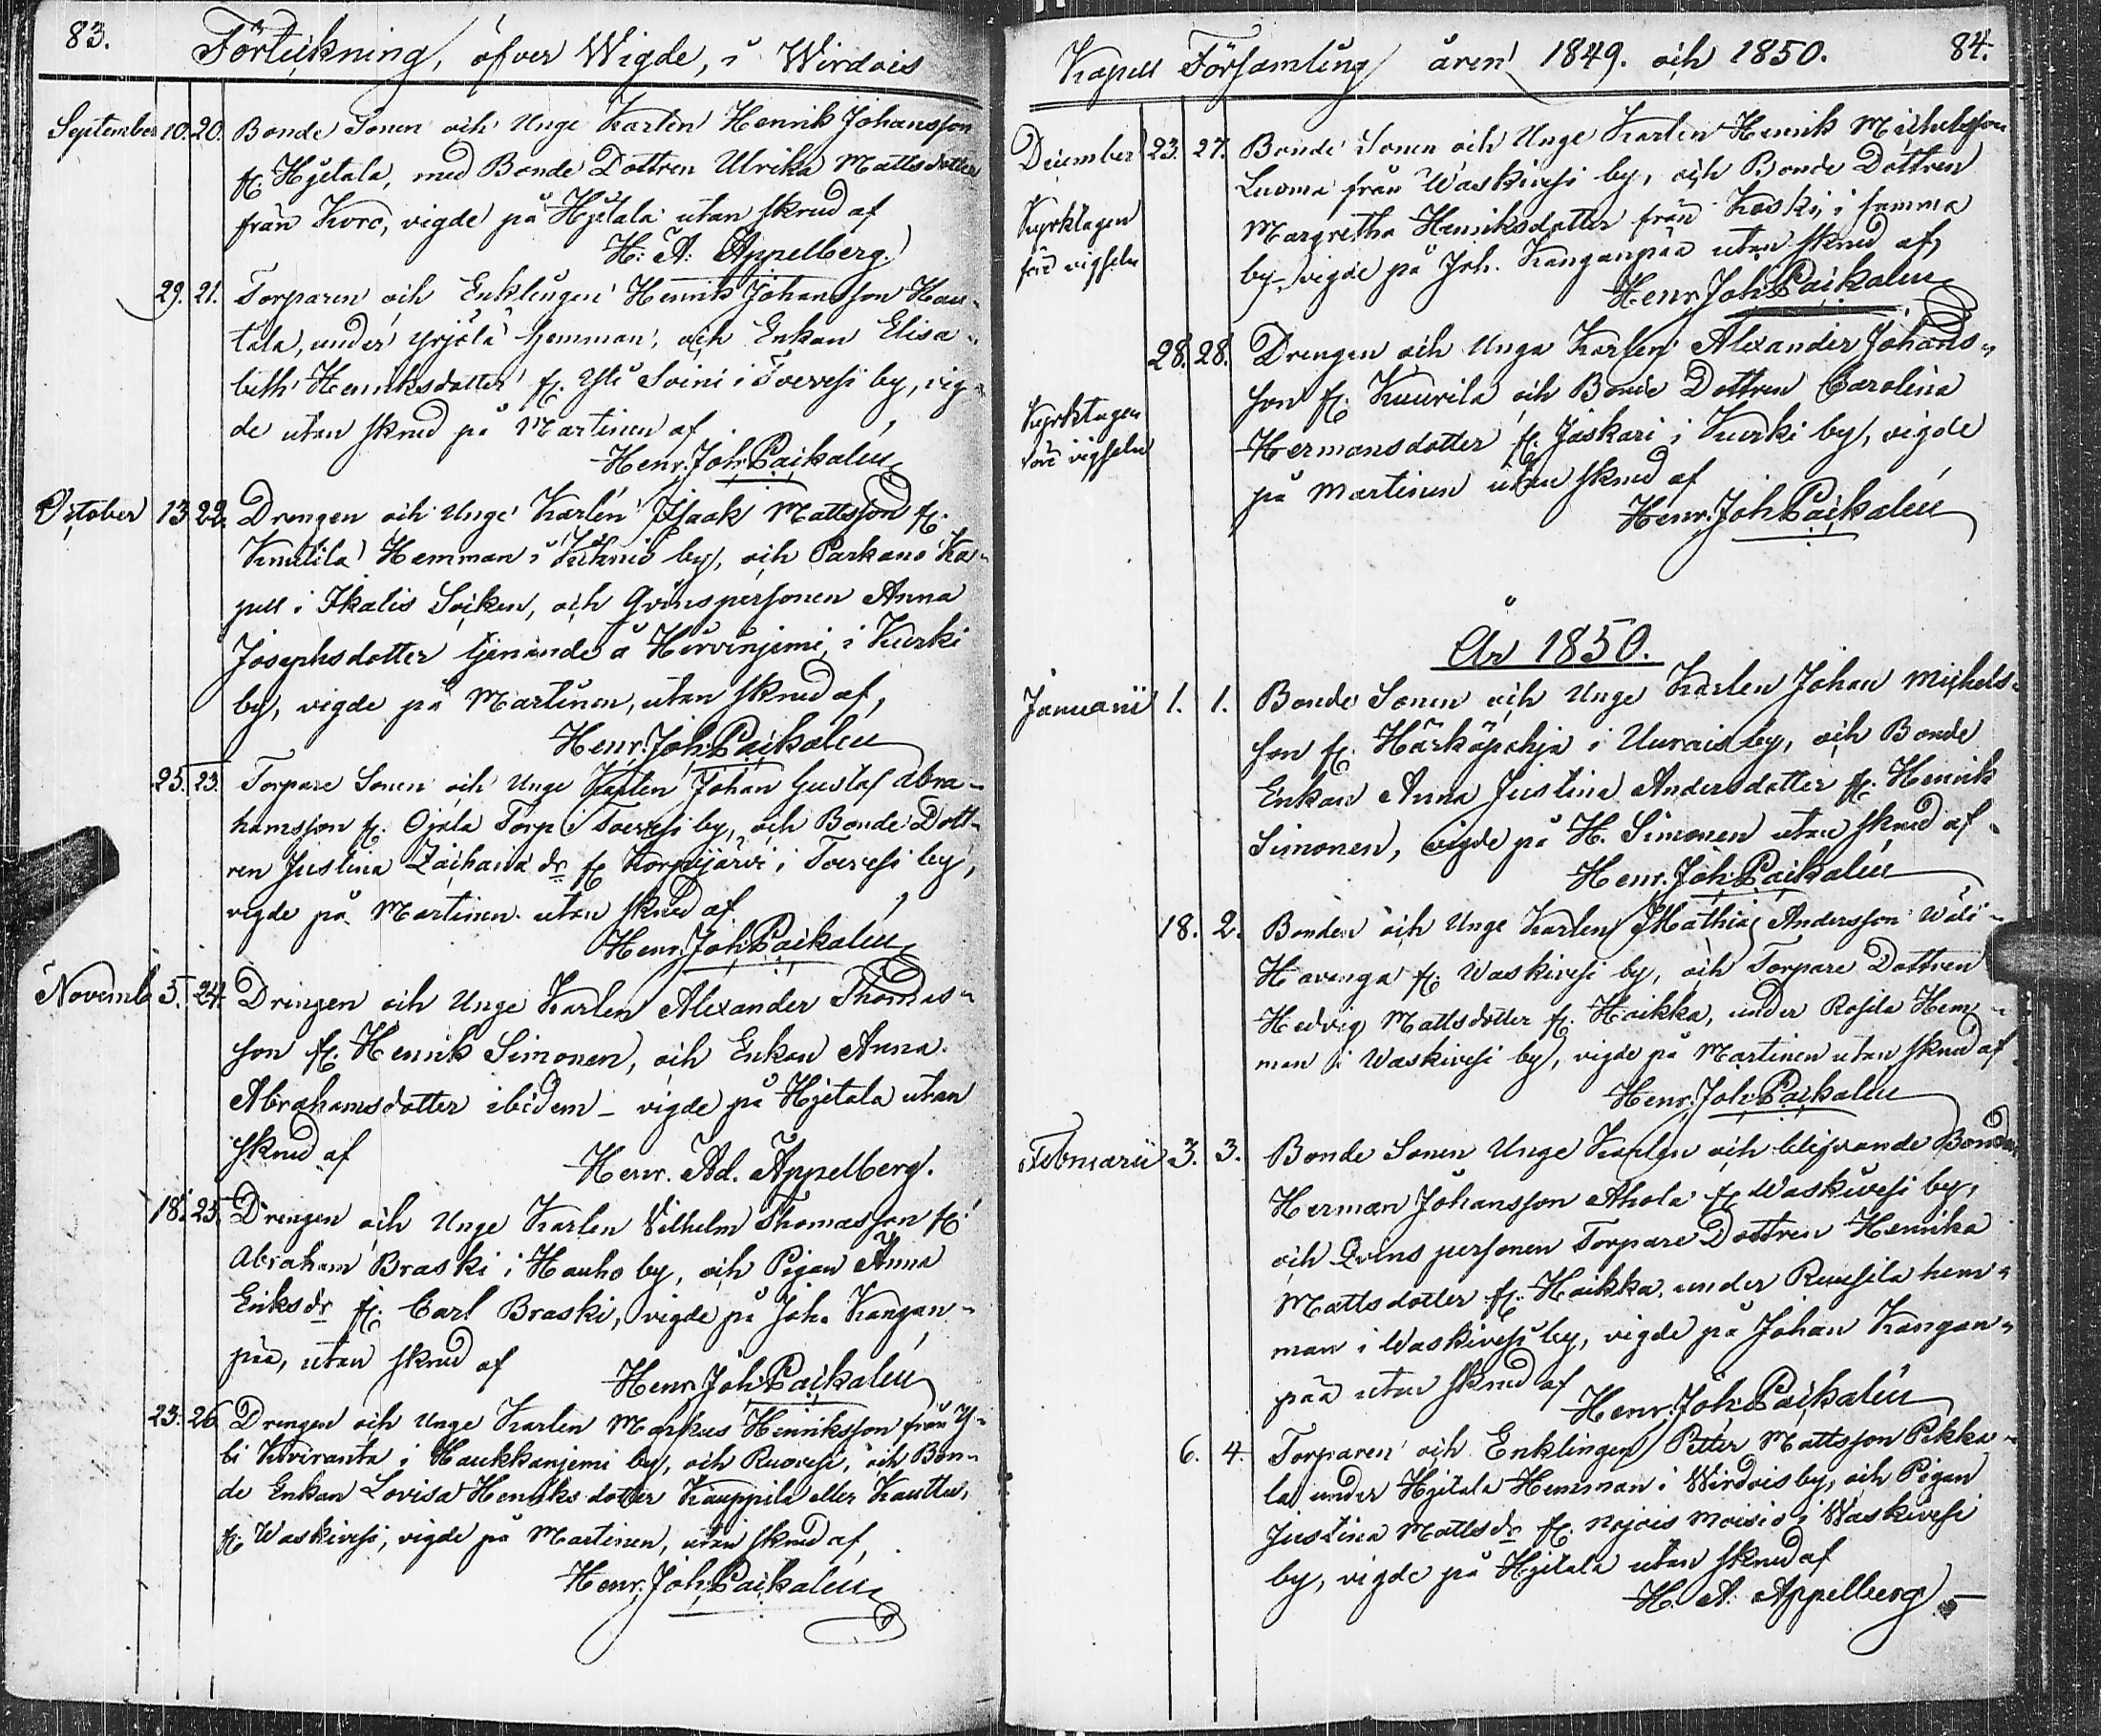 83.
Förteckning, öfver Wigde, i Wirdois
September 10. 20. Bonde Sonen och Unge Karlen Henrik Johansson
fr. Hjitala, med Bonde Dottren Ulrika Mattsdotter
från Koro, vigde på Hjitala utan skrud af
H: A: Appelberg.
29. 21. Torparen och Enklingen Henrik Johansson Hau-
tala, under Yrjälä hemman, och Enkan Elisa-
beth Henriksdotter fr. Yli Soini i Toevesi by, vig-
de utan skrud på Martinen af
Henr. Joh. Paikalén
October 13 22. Drengen och Unge Karlen Isaak Mattsson fr.
Knutila Hemman i Kihniö by, och Parkano Ka-
pell i Ikalis Socken, och Qvinspersonen Anna
Josephsdotter tjenande å Hirvinjemi, i Kurki
by, vigde på Martinen, utan skrud af,
Henr. Joh. Paikalén
25. 23. Torpare Sonen och Unge Karlen Johan Gustaf Abra-
hamsson fr. Ojala Torp i Toevesi by, och Bonde Dott-
ren Justina Zachariæ dr fr. Korpijärvi i Toevesi by,
vigde på Martinen utan skrud af
Henr. Joh. Paikalén
Novemb 5. 24. Drengen och Unge Karlen Alexander Thomas-
son fr. Henrik Simonen, och Enkan Anna
Abrahamsdotter ibidem - vigde på Hjitala utan
skrud af
Henr. Ad. Appelberg.
18. 25. Drengen och Unge Karlen Vilhelm Thomasson fr.
Abraham Braski i Hauho by, och Pigan Anna
Eriksdr fr. Carl Braski, vigde på Joh. Kangan-
pää, utan skrud af
Henr. Joh. Paikalén
23. 26. Drengen och Unge Karlen Markus Henriksson från Y-
li Koviranta i Haukkanjemi by, och Ruovesi, och Bon-
de Enkan Lovisa Henriksdotter Kauppila eller Kauttu,
fr. Waskivesi, vigde på Martinen, utan skrud af,
Henr. Joh. Paikalén
Kapell Församling åren 1849. och 1850. 84.
December 23. 27. Bonde Sonen och Unge Karlen Henrik Michelsson
Luoma från Waskivesi by, och Bonde Dottren
Kyrktagen
före vigseln
Margretha Henriksdotter från Koski, i samma
by, vigde på Joh. Kanganpää utan skrud af,
Henr. Joh. Paikalén
28. 28. Drengen och Unga Karlen Alexander Johans-
son fr. Kuurila och Bonde Dottren Carolina
Kyrktagen
före vigseln
Hermansdotter fr. Jäskari i Kurki by, vigde
på Martinen utan skrud af
Henr. Joh Paikalén
År 1850.
Januarii 1. 1. Bonde Sonen och Unge Karlen Johan Michels-
son fr. Härköpohja i Uurais by, och Bonde
Enkan Anna Justina Andersdotter fr. Henrik
Simonen, vigde på H. Simonen utan skrud af
Henr. Joh. Paikalén
18. 2. Bonden och Unge Karlen Mathias Andersson Wäli-
Havanga fr. Waskivesi by, och Torpare Dottren
Hedvig Mattsdotter fr. Haikka, under Rosila Hem-
man i Waskivesi by, vigde på Martinen utan skrud af
Henr. Joh. Paikalén
Februarii 3. 3. Bonde Sonen Unge Karlen och blifvande Bonden
Herman Johansson Ahola fr. Waskivesi by,
och Qvinspersonen Torpare Dottren Henrika
Mattsdotter fr. Haikka, under Ruusila hem-
man i Waskivesi by, vigde på Johan Kangan-
pää utan skrud af
Henr. Joh. Paikalén
6. 4. Torparen och Enklingen Petter Mattsson Pekka-
la under Hjitala Hemman i Wirdois by, och Pigan
Justina Mattsdr fr. Moisio i Waskivesi
by, vigde på Hjitala utan skrud af
H. A. Appelberg